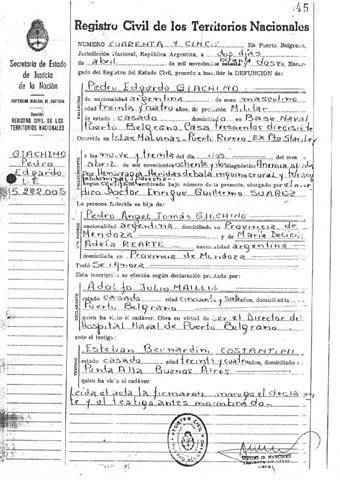 45
Registro Civil de los Territorios Nacionales
Secretaría de Estado
de Justicia
de la Nación
REGISTRO CIVIL DE LOS
TERRITORIOS NACIONALES
GIACHINO
Pedro
Edgardo
L.E.
NUMERO CUARENTA Y CINCO En Puerto Belgrano,
Jurisdicción Nacional, República Argentina, a dos días
de abril de mil novecientos ochenta y dos, Encar-
gado del Registro del Estado Civil, procedo a inscribir la DEFUNCION de:
Pedro Edgardo GIACHINO
nacionalidad argentina de sexo masculino
treinta y cuatro años, de profesión Militar
de estado casado en Base Naval
Puerto Belgrano Casa trescientos diecisiete
en Islas Malvinas - Puerto Rivero - Ex Pto Stanley
a las nueve y treinta del dos del mes
abril de mil novecientos ochenta y dos
por Hemorragia Heridas de bala
archivado bajo número de la presente, otorgado por
Doctor Enrique Guillermo SUAREZ
La persona fallecida es hija de:
Pedro Angel Tomás GIACHINO
nacionalidad argentina domiciliado en Provincia de
Mendoza y de María Delicia
Adela REARTE nacionalidad argentina
domiciliada en Provincia de Mendoza
Testó Se ignora
Esta inscripción se efectúa según declaración prestada por:
Adolfo Julio MAILLIS
estado casado edad cincuenta y años, domiciliado
Puerto Belgrano
quien ha visto el cadáver. Obra en virtud de ser el Director del
Hospital Naval de Puerto Belgrano
ante el testigo:
Esteban Bernardin COSTANTINI
estado casado edad treinta y cuatro años, domiciliado
Punta Alta Buenos Aires
quien ha visto el cadáver.
Leída el acta la firmaron conmigo el declaran
te y el testigo antes nombrado.